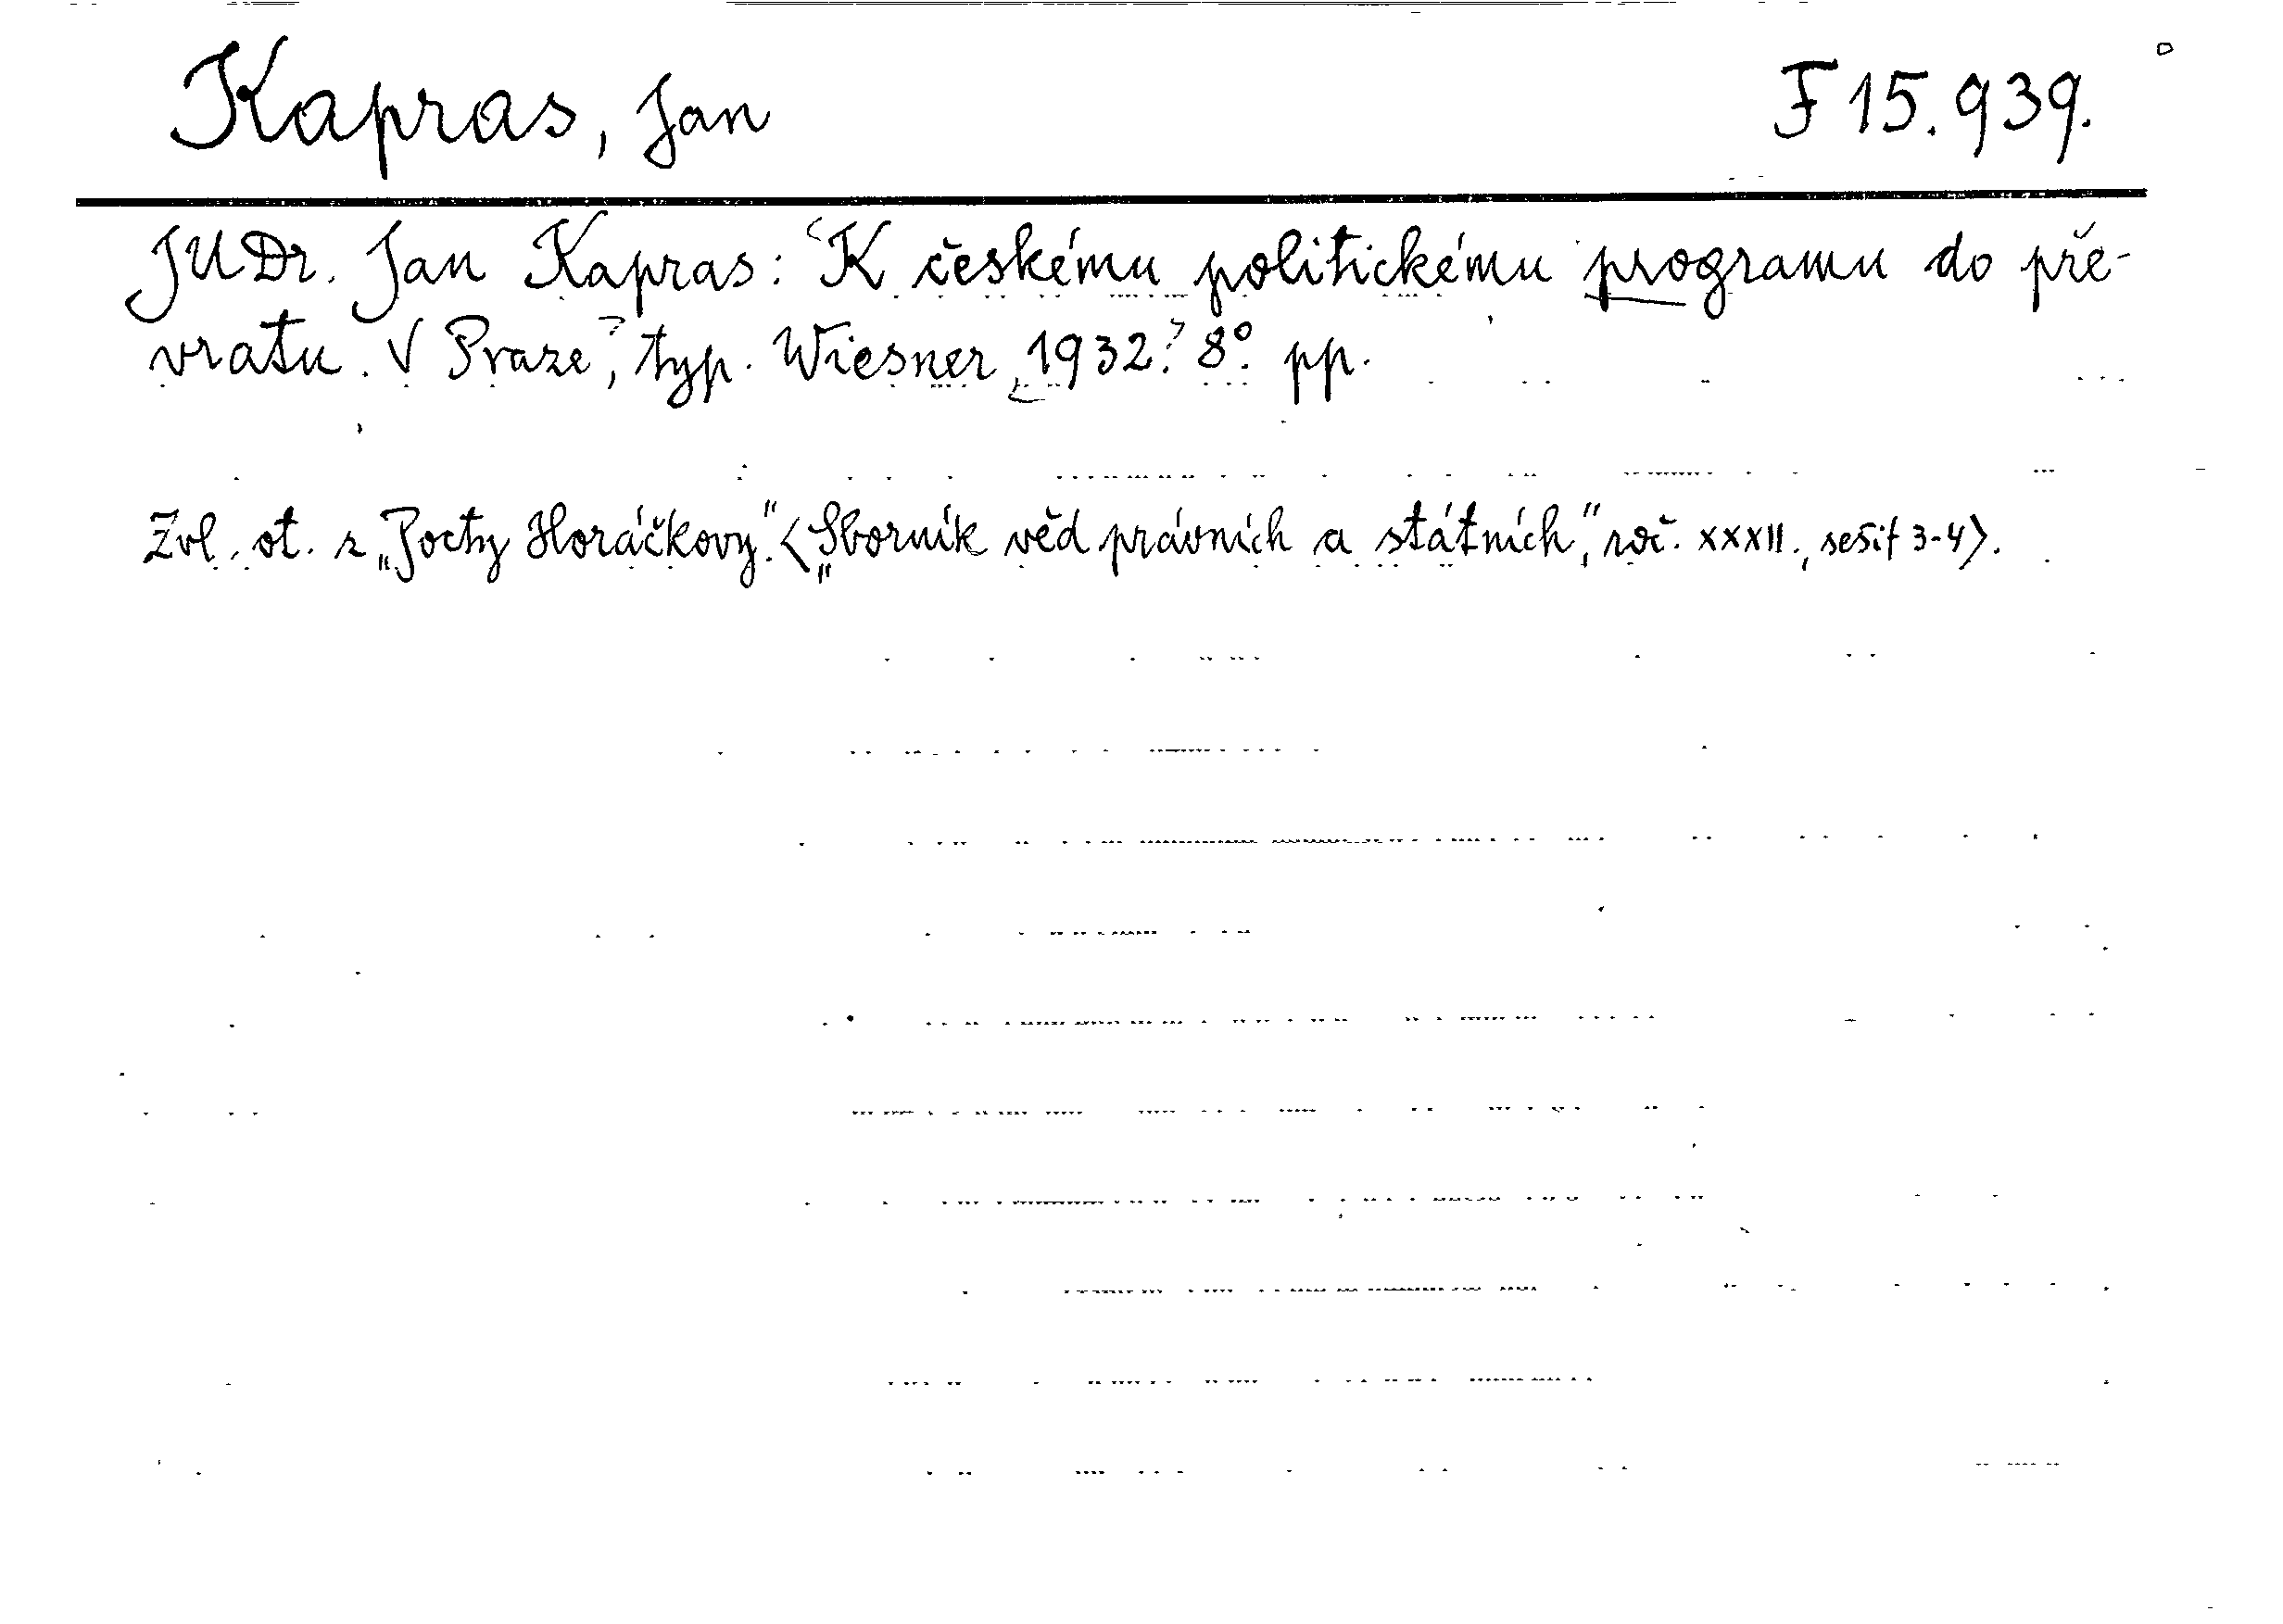 Kapras, Jan F 15.939.
JUDr. Jan Kapras: K českému politickému programu do pře-
vratu. V Praze, typ. Wiesner, 1932. 8°. pp.
Zvl. ot. z „Pocty Horáčkovy“. <„Sborník věd právních a státních“, roč. XXXII., sešit 3-4>.